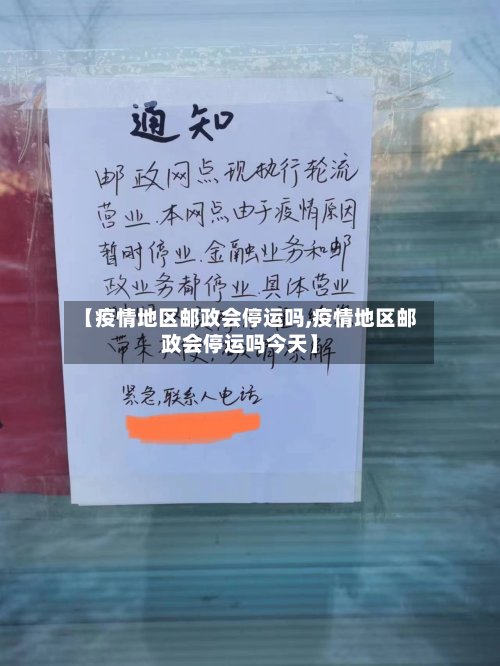 通知
邮政网点现执行轮流
营业.本网点由于疫情原因
暂时停业.金融业务和邮
政业务都停业.具体营业
【疫情地区邮政会停运吗,疫情地区邮
政会停运吗今天】
带来
解
紧急,联系人电话